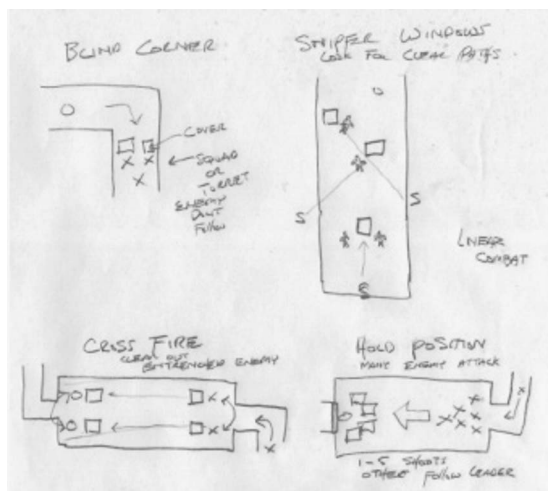 BLIND CORNER
COVER
X X
X
SQUAD
OR
TURRET
ENEMY
DON'T
FOLLOW
SNIPER WINDOWS
LOOK FOR CLEAR PATHS
S
S
S
LINEAR
COMBAT
CROSS FIRE
CLEAR OUT
ENTRENCHED ENEMY
X
X
X
HOLD POSITION
MANY ENEMY ATTACK
X
X X
X X X
X
X
1-5 SHOOTS
OTHERS FOLLOW LEADER